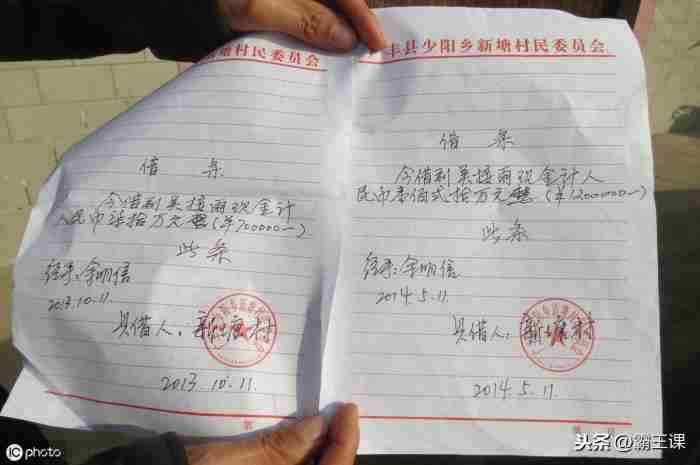 村民委员会
借条
今借到吴接雨现金计
人民币柒拾万元整(¥700000—)
此条
经手:余明信
2013.10.11.
具借人:新塘村
2013.10.11.
第
丰县少阳乡新塘村民委员会
借条
今借到吴接雨现金计人
民币壹佰式拾万元整(¥1200000—)
此条
经手:余明信
2014.5.11.
具借人:新塘村
2014.5.11.
iC photo
头条@霸王课